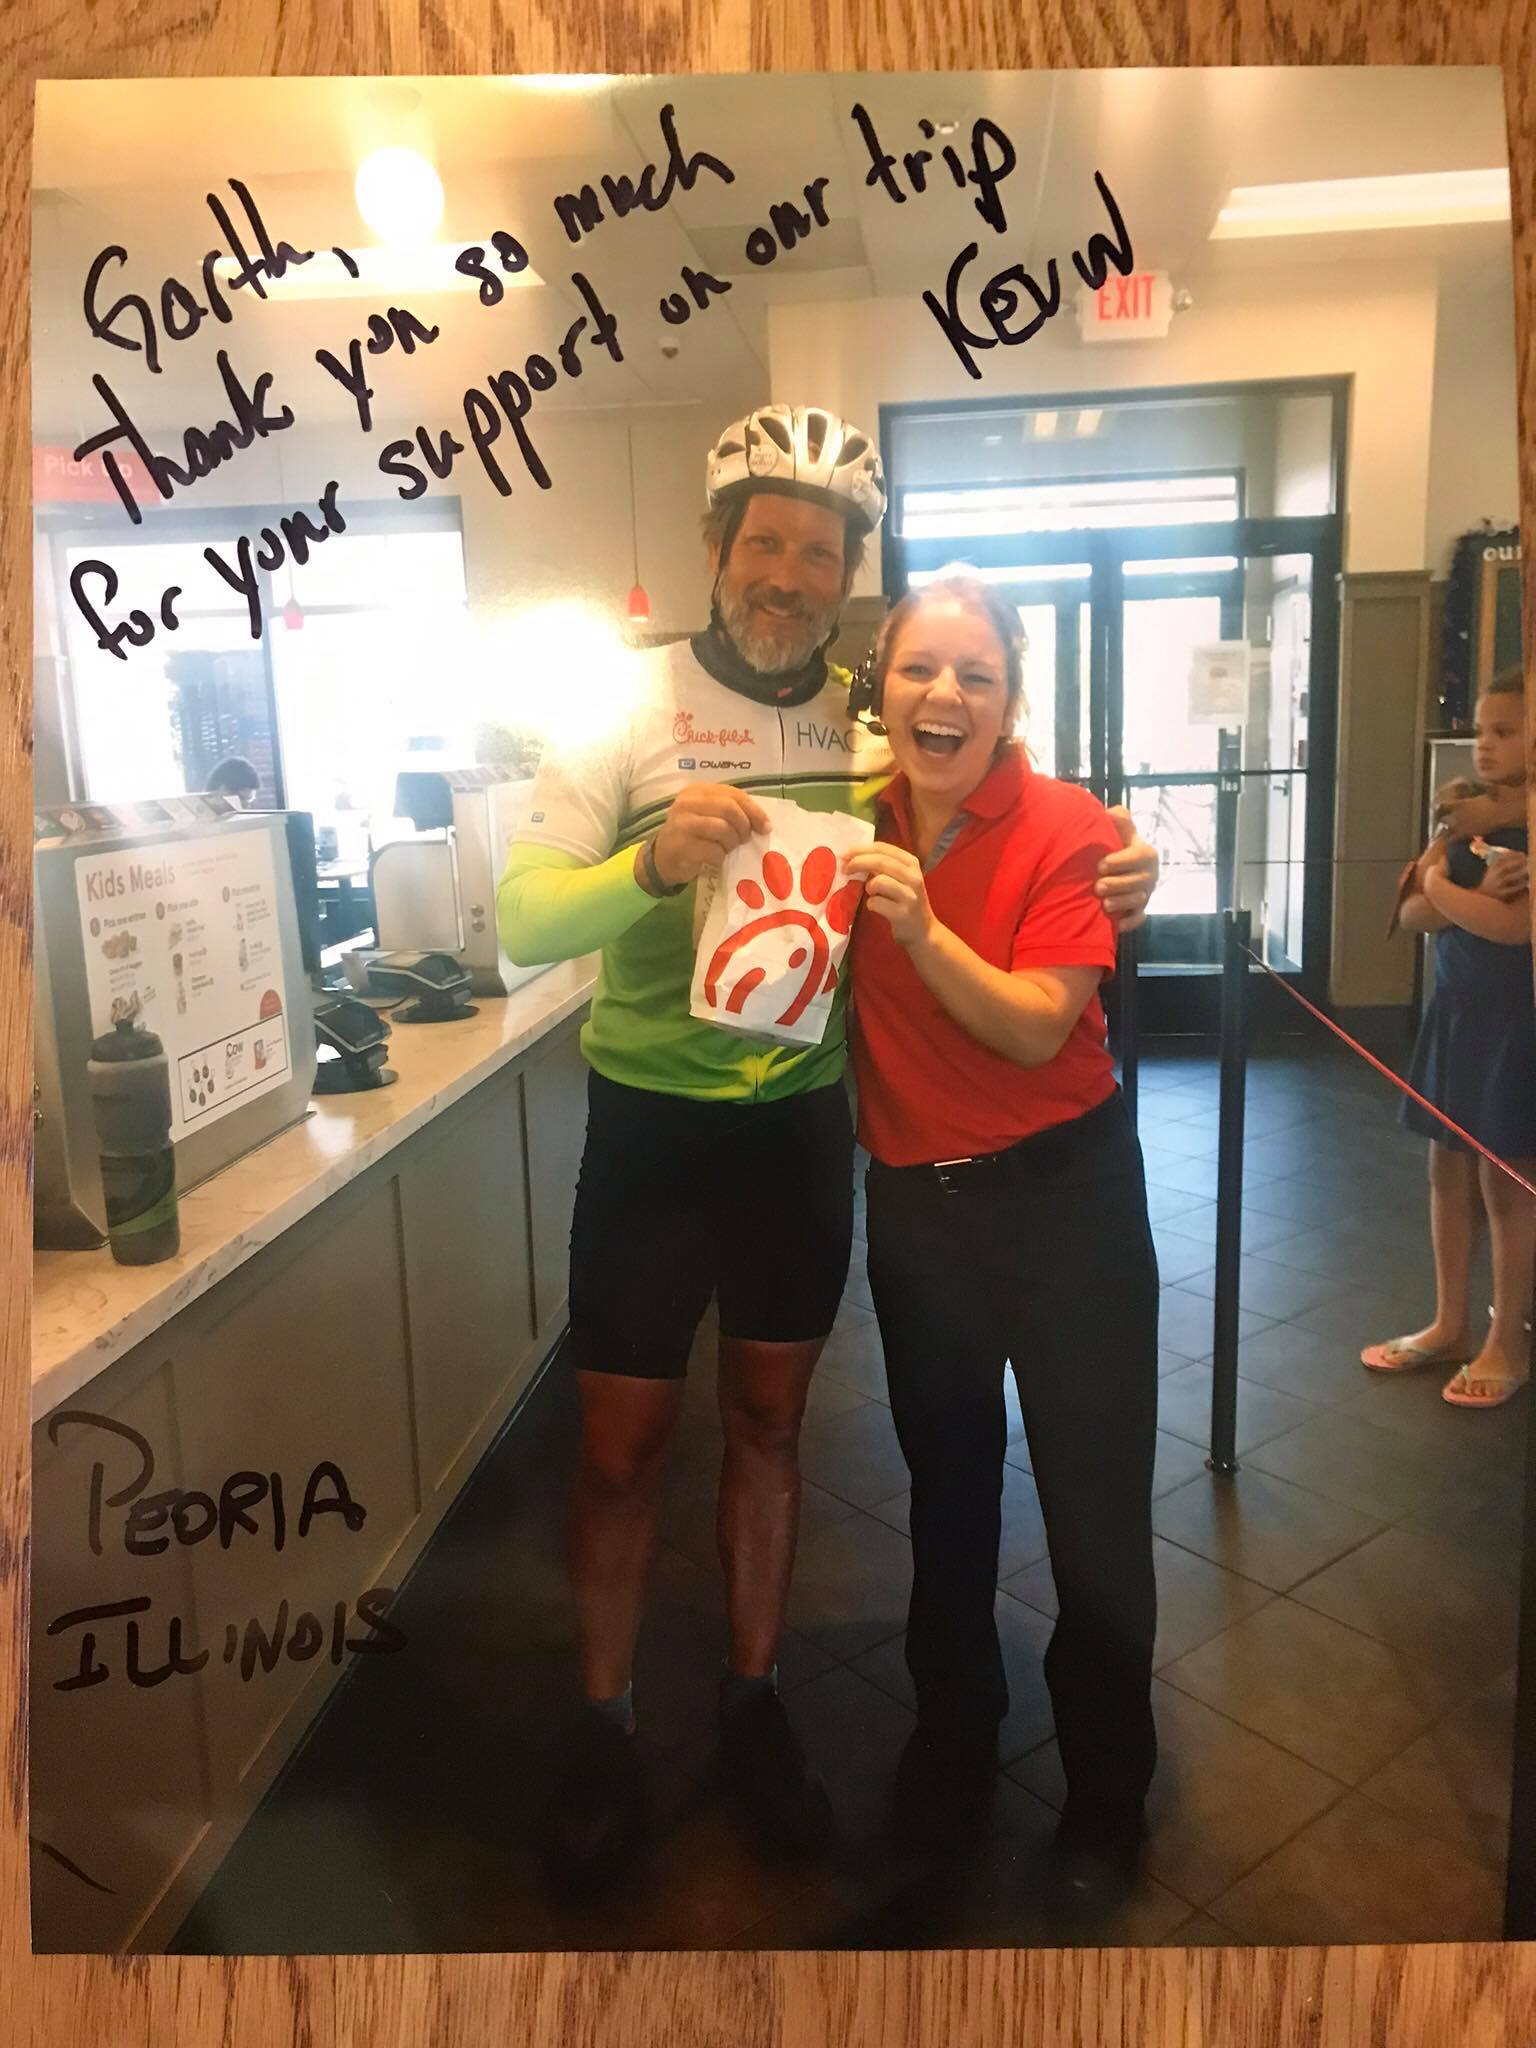 Garth,
Thank you so much
for your support on our trip
KEVIN
EXIT
Pick Up
our
Chick-fil-A
HVAC
owayo
Kids Meals
Cow
PEORIA
ILLINOIS